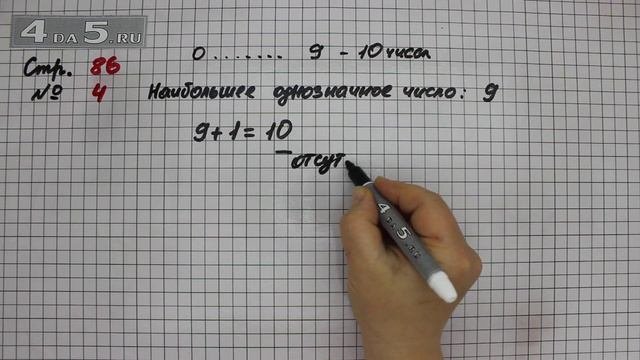 4 DA 5.RU
Стр. 86
№ 4
0 . . . . . . . 9 - 10 чисел
Наибольшее однозначное число: 9
9 + 1 = 10
отсут
4 DA 5.RU